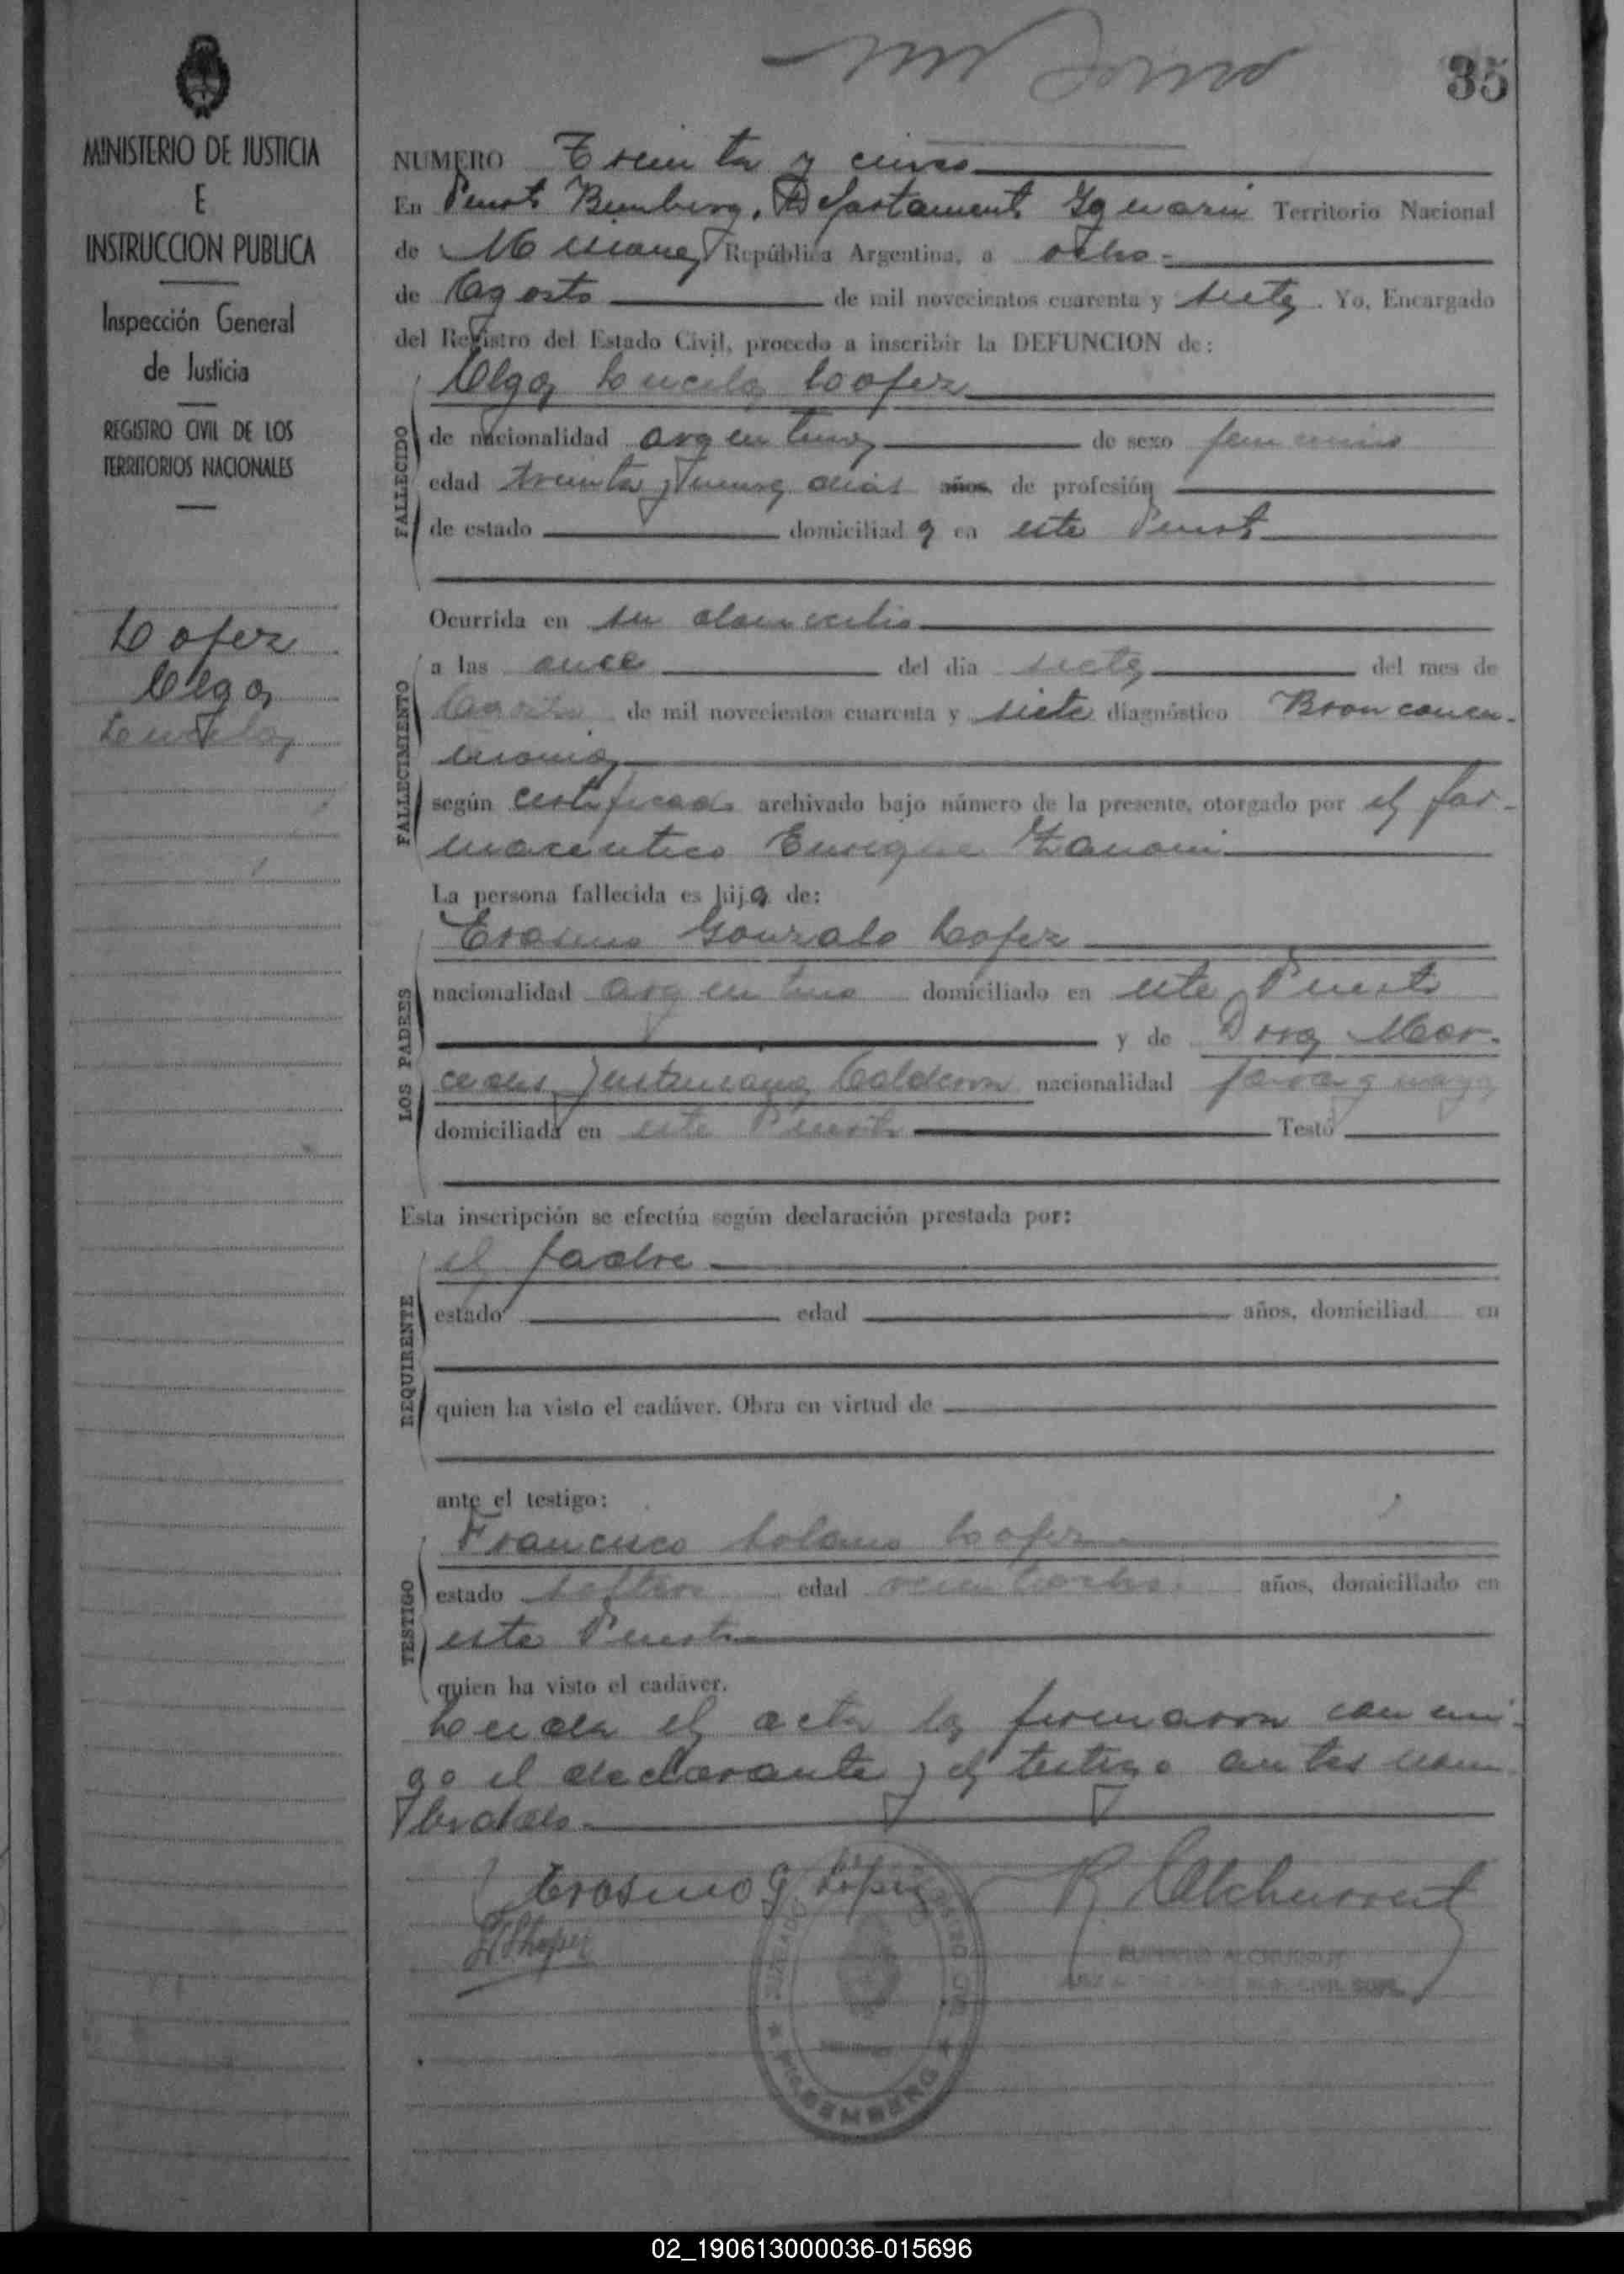 35
MINISTERIO DE JUSTICIA
E
INSTRUCCION PUBLICA
Inspección General
de Justicia
REGISTRO CIVIL DE LOS
TERRITORIOS NACIONALES
Lopez
Olga
Lucila
NUMERO Treinta y cinco
En Puerto Bemberg, Departamento Iguazú Territorio Nacional
de Misiones República Argentina, a ocho
de Agosto de mil novecientos cuarenta y siete. Yo, Encargado
del Registro del Estado Civil, procedo a inscribir la DEFUNCION de:
Olga Lucila Lopez
FALLECIDO
de nacionalidad argentina de sexo femenino
edad treinta y nueve dias años de profesión
de estado domiciliada en este Puerto
Ocurrida en su domicilio
FALLECIMIENTO
a las once del día siete del mes de
Agosto de mil novecientos cuarenta y siete diagnóstico Bronconeu-
monia
según certificado archivado bajo número de la presente, otorgado por el far-
maceutico Enrique Zanoni
La persona fallecida es hija de:
LOS PADRES
Erasmo Gonzalo Lopez
nacionalidad argentino domiciliado en este Puerto
y de Dora Mer-
cedes Justiniana Calderon nacionalidad paraguaya
domiciliada en este Puerto Testó
Esta inscripción se efectúa según declaración prestada por:
REQUIRENTE
el padre
estado edad años, domiciliad en
quien ha visto el cadáver. Obra en virtud de
ante el testigo:
TESTIGO
Francisco Solano Lopez
estado soltero edad veintiocho años, domiciliado en
este Puerto
quien ha visto el cadáver.
Leida el acta la firmaron conmi-
go el declarante y el testigo antes nom-
brados
Erasmo G. López R. Alchurrut
FSLopez
PTO. BEMBERG
02_190613000036-015696